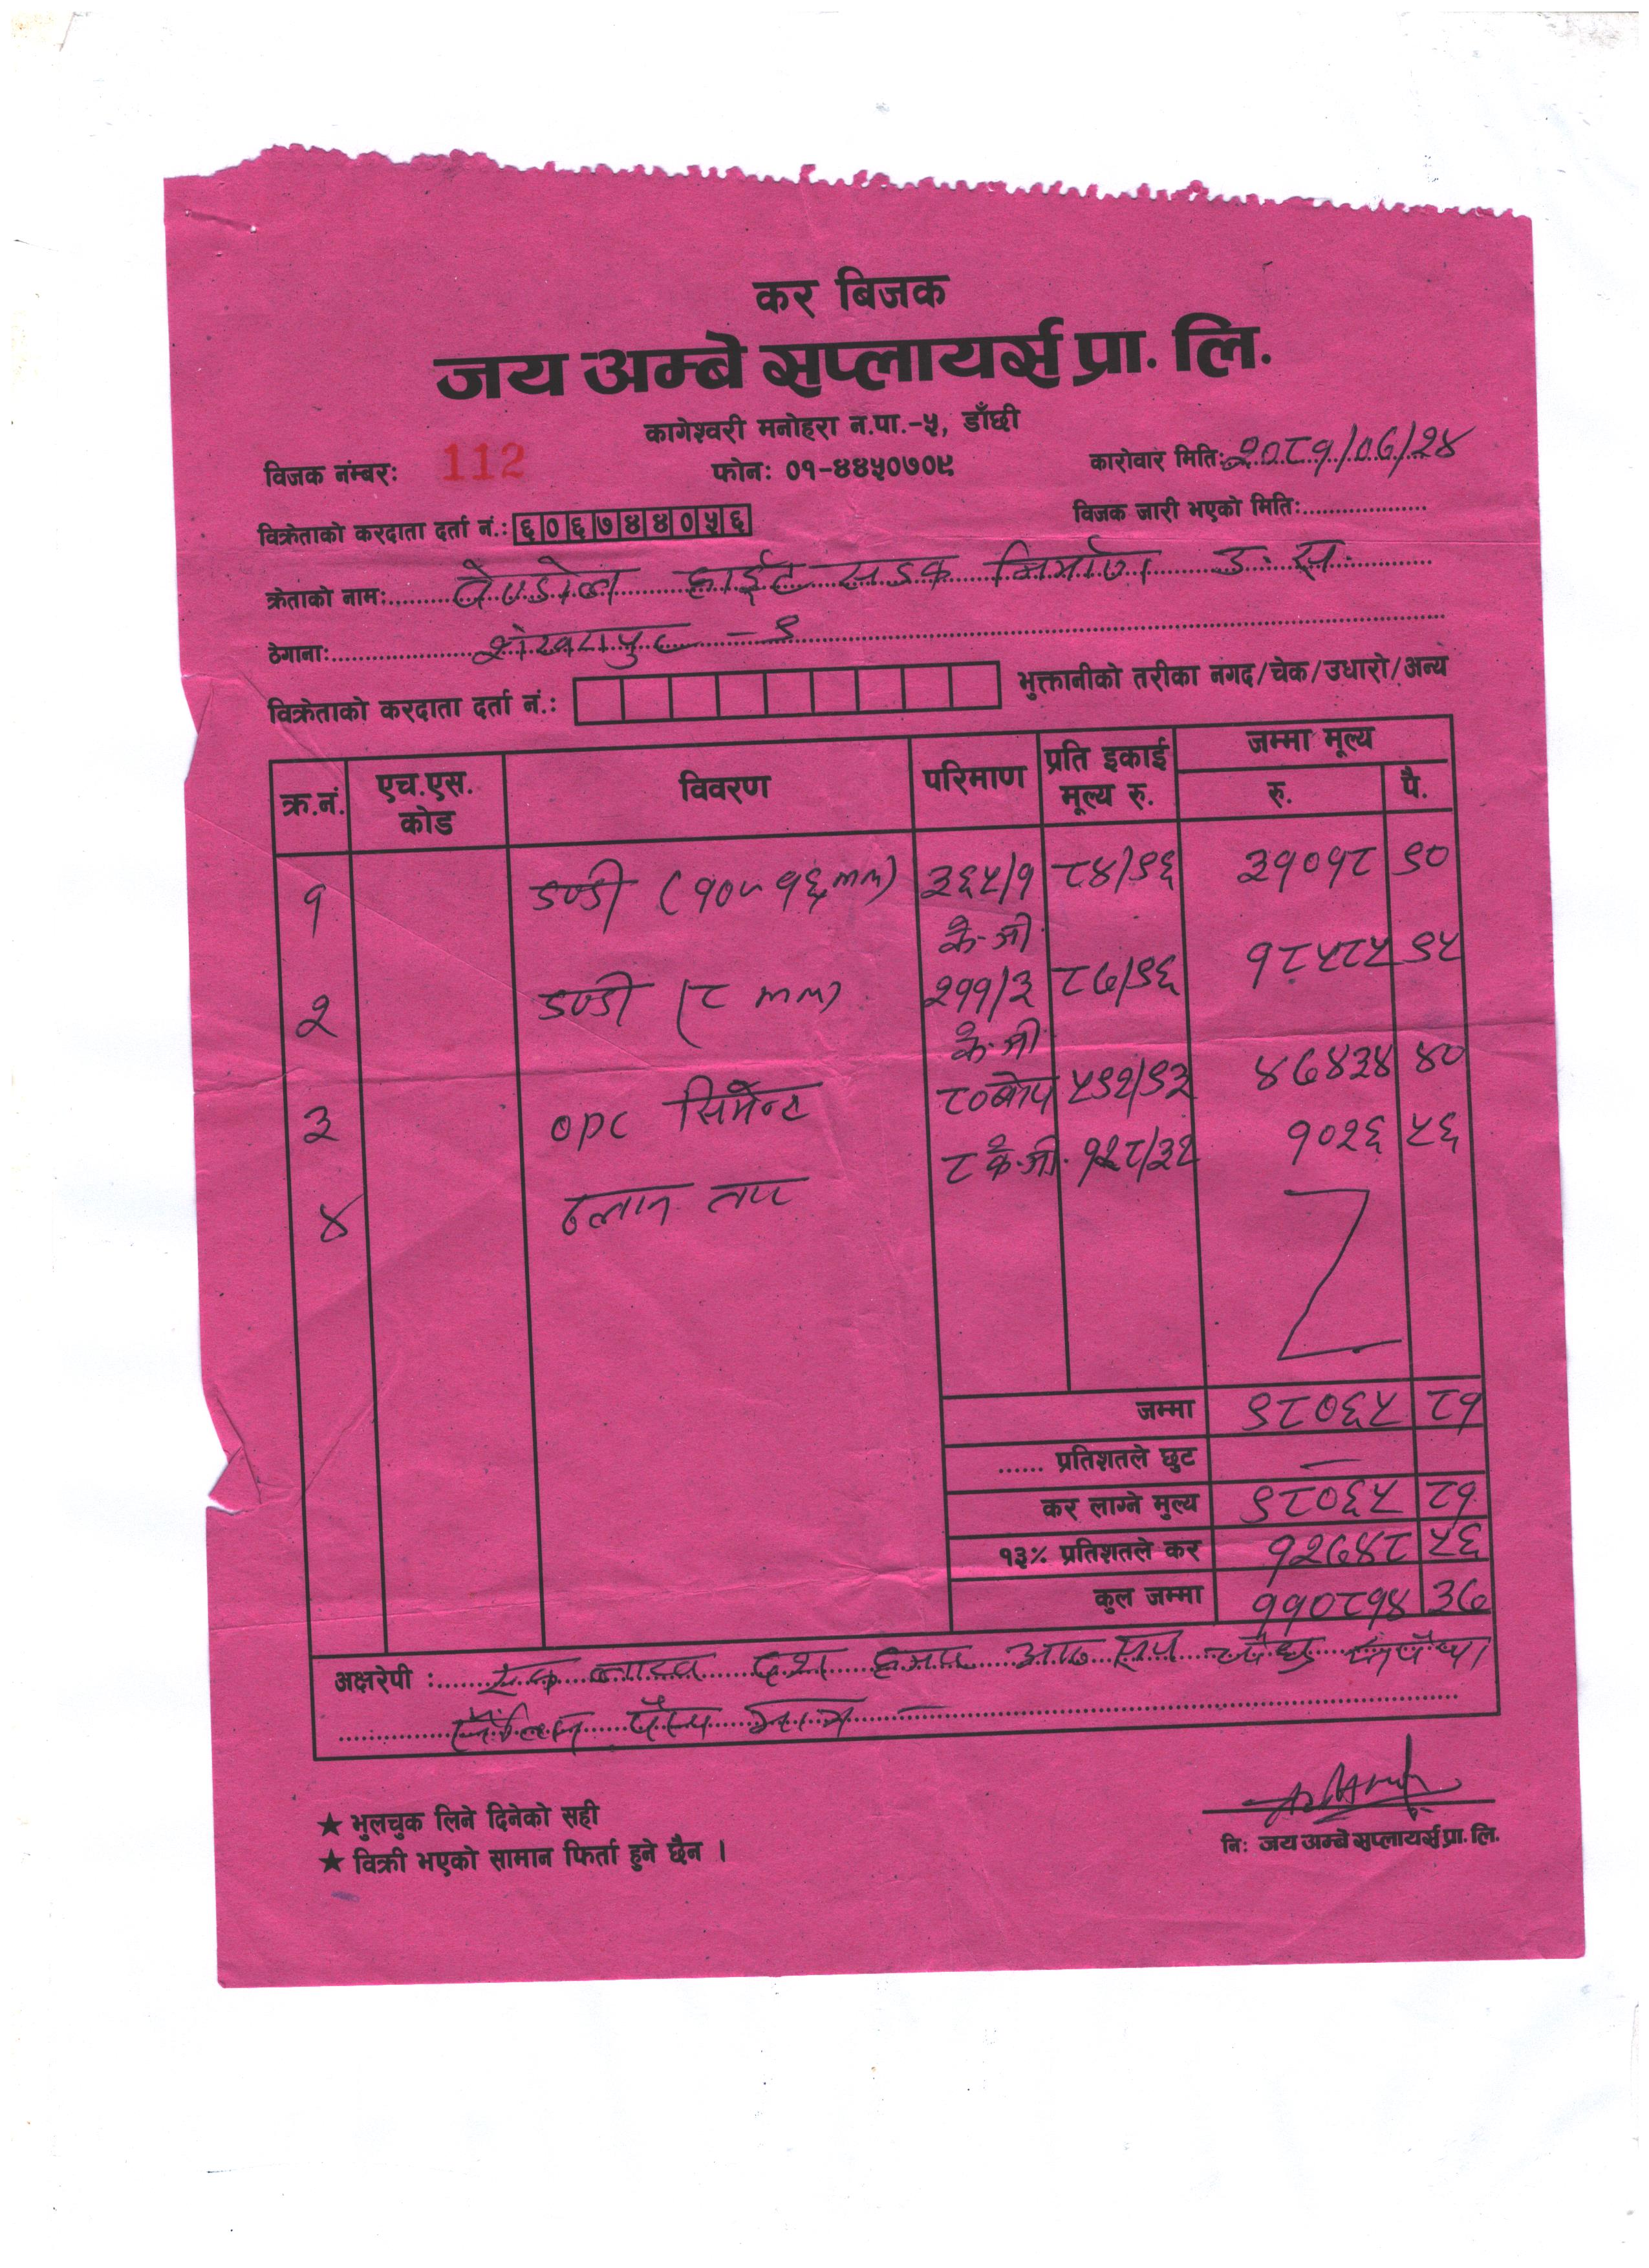 कर बिजक
जय अम्बे सप्लायर्स प्रा. लि.
कागेश्वरी मनोहरा न.पा.-५, डाँछी
विजक नंम्बर: 112 फोन: ०१-४४५०७०९ कारोवार मिति: २०८१/०७/२४
विक्रेताको करदाता दर्ता नं.: ६०६७४४०५६ विजक जारी भएको मिति:
क्रेताको नाम: सडक निर्माण उ. स.
ठेगाना: शंखरापुर - ९
विक्रेताको करदाता दर्ता नं.: भुक्तानीको तरीका नगद/चेक/उधारो/अन्य
क्र.नं. एच.एस. कोड विवरण परिमाण प्रति इकाई मूल्य रु. जम्मा मूल्य रु. पै.
१ डण्डी (१०५१६mm) ३६५/१ के.जी. ८४/९६ ३१०१८ ९०
२ डण्डी (८ mm) २११/३ के.जी. ८७/९६ १८५८५ ९५
३ opc सिमेन्ट ८० बोरा ५९२/९३ ४७४३४ ४०
४ ढलान तार ८ के.जी. १२८/३२ १०२६ ५६
जम्मा ९८०६५ ८१
...... प्रतिशतले छुट —
कर लाग्ने मुल्य ९८०६५ ८१
१३% प्रतिशतले कर १२७४८ ५६
कुल जम्मा ११०८१४ ३७
अक्षरेपी : एक लाख दश हजार आठ सय चौध रुपैया
सैंतिस पैसा मात्र
★ भुलचुक लिने दिनेको सही
★ विक्री भएको सामान फिर्ता हुने छैन ।
नि: जय अम्बे सप्लायर्स प्रा. लि.